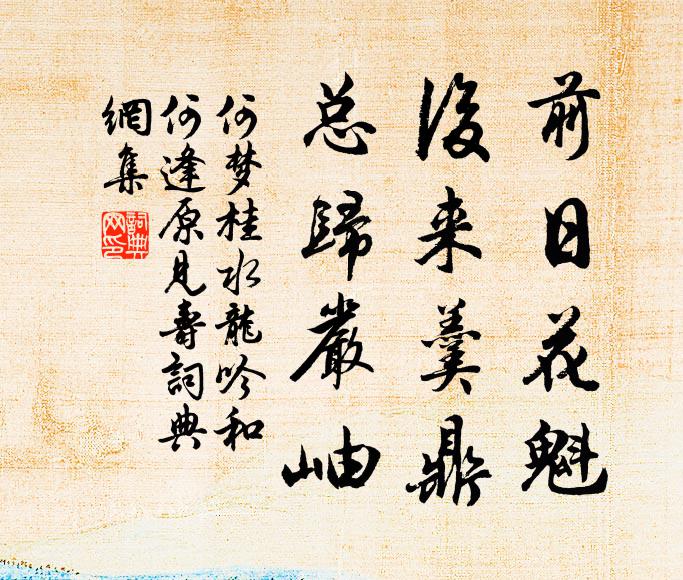 前日花魁
後来羹鼎
总歸嚴岫
何梦桂水龍吟和
何逢原見壽詞典
網集
詞典
网印